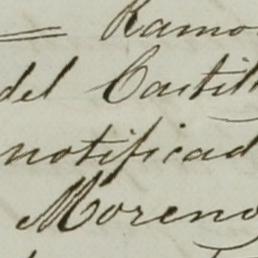 = Ramo
del Castill
notificad
Moreno